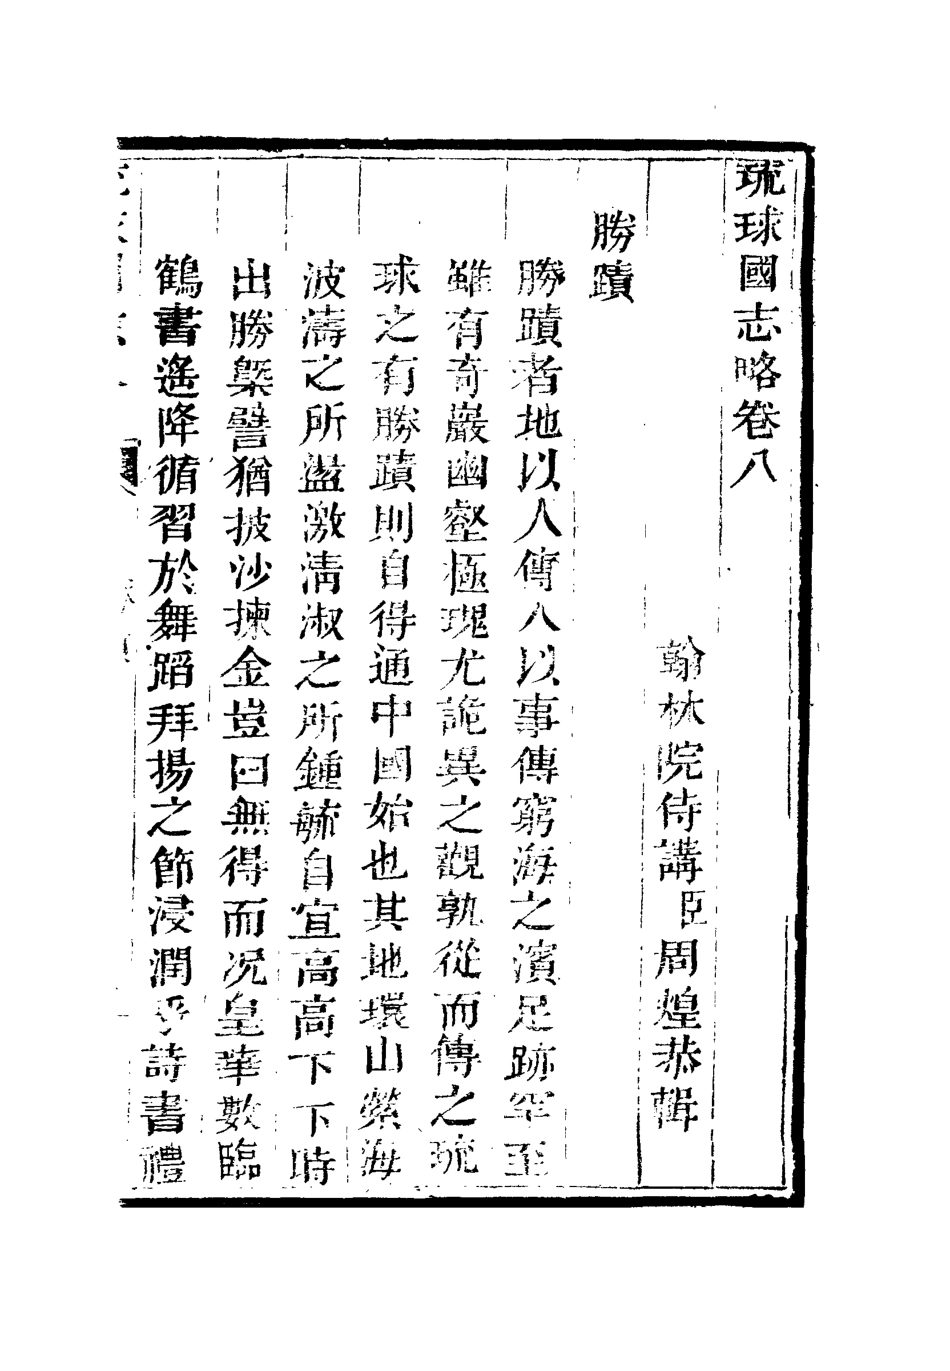 琉球國志略卷八
翰林院侍講臣周煌恭輯
勝蹟
勝蹟者地以人傳人以事傳窮海之濱足跡罕至
雖有奇巖幽壑極瑰尤詭異之觀孰從而傳之琉
球之有勝蹟則自得通中國始也其地環山縈海
波濤之所盪激淸淑之所鍾毓自宣高高下下時
出勝槩譬猶披沙揀金豈曰無得而况皇華數臨
鶴書遙降循習於舞蹈拜揚之節浸潤乎詩書禮